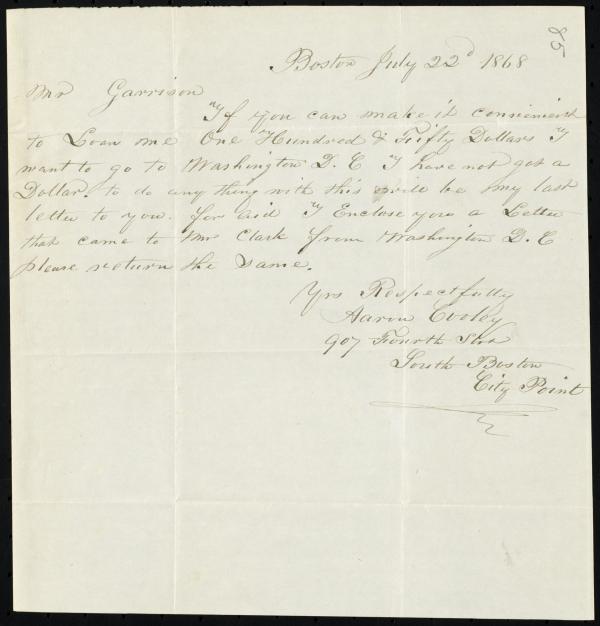 85
Boston July 22d 1868
Mr Garrison
If you can make it convenient
to Loan me One Hundred & Fifty Dollars I
want to go to Washington D. C I have not got a
Dollar. to do any thing with this will be my last
letter to you. for aid I Enclose you a Letter
that came to Mr Clark from Washington D. C
please return the same.
Yrs Respectfully
Aaron Cooley
907 Fourth Stre
South Boston
City Point